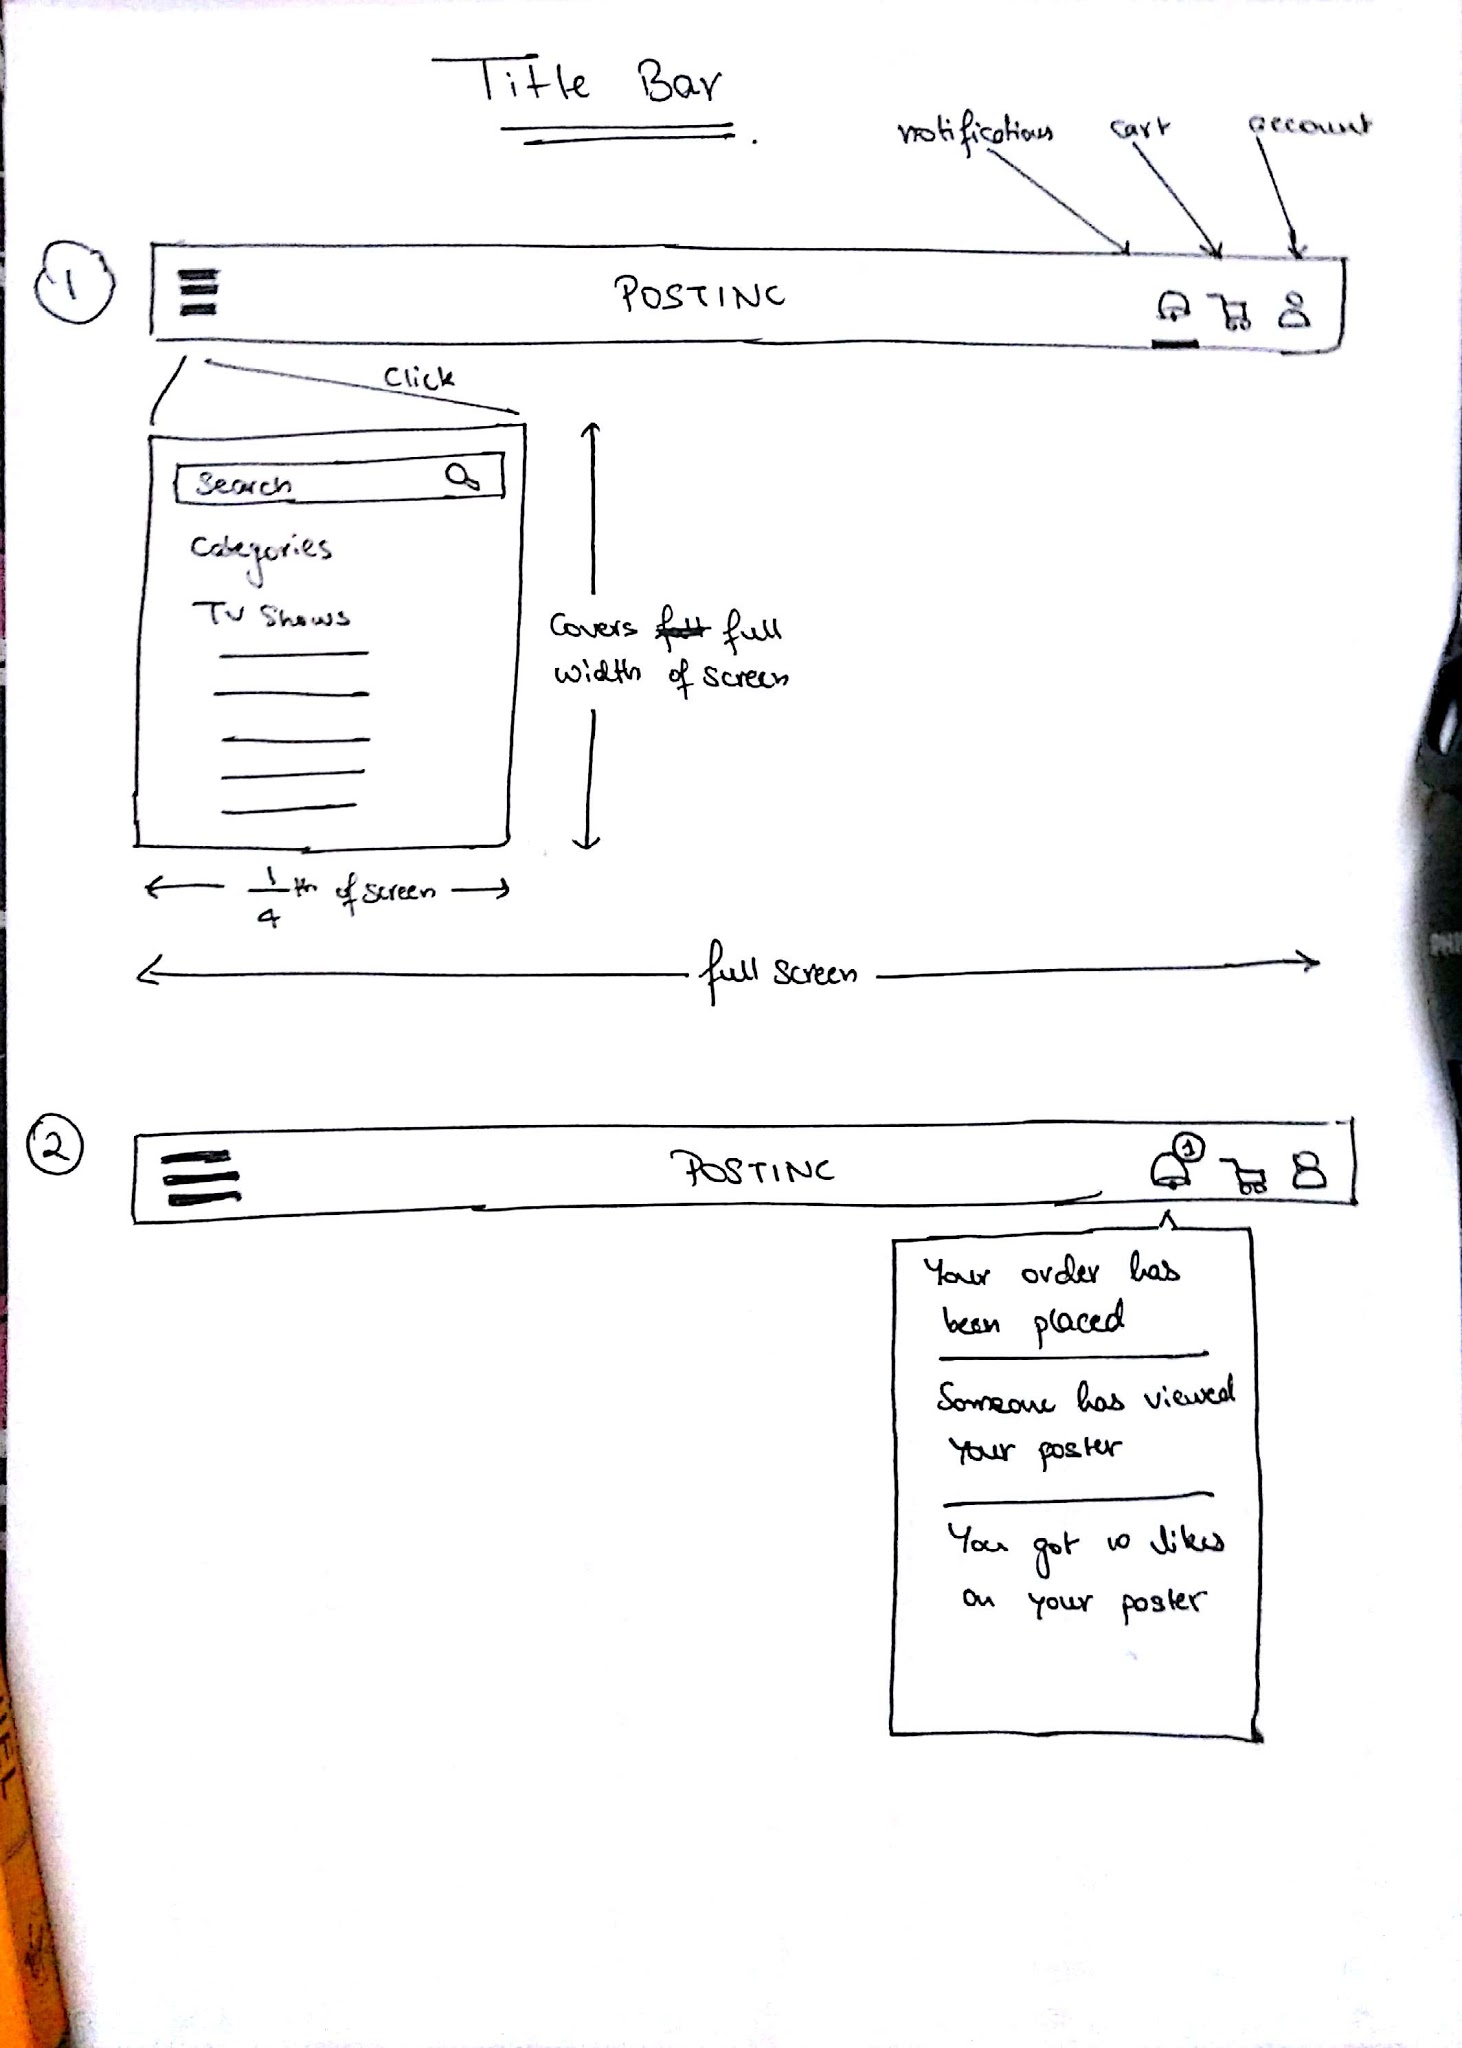 Title Bar
notifications cart account
1
POSTINC
Click
Search
Categories
TV Shows
Covers full
width of screen
1/4 th of screen
full screen
2
POSTINC
1
Your order has
been placed
Someone has viewed
Your poster
You got 10 likes
on your poster